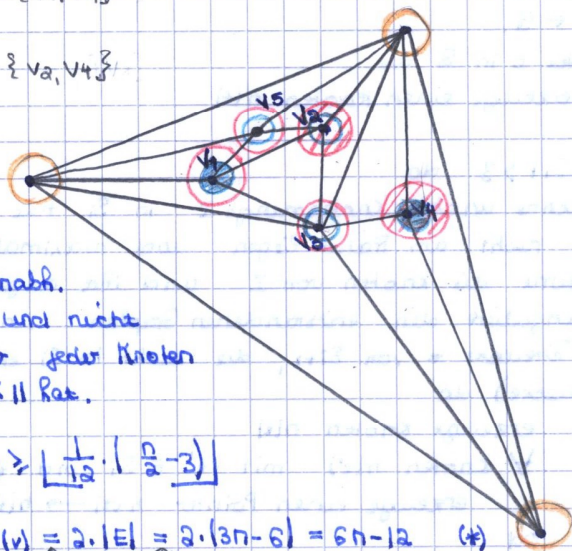 { V2, V4 }
V5
V2
V1
V4
V3
nabh.
und nicht
jeder Knoten
11 hat.
≥ ⌊ 1/12 · ( n/2 - 3) ⌋
(v) = 2·|E| = 2·(3n-6) = 6n-12 (*)